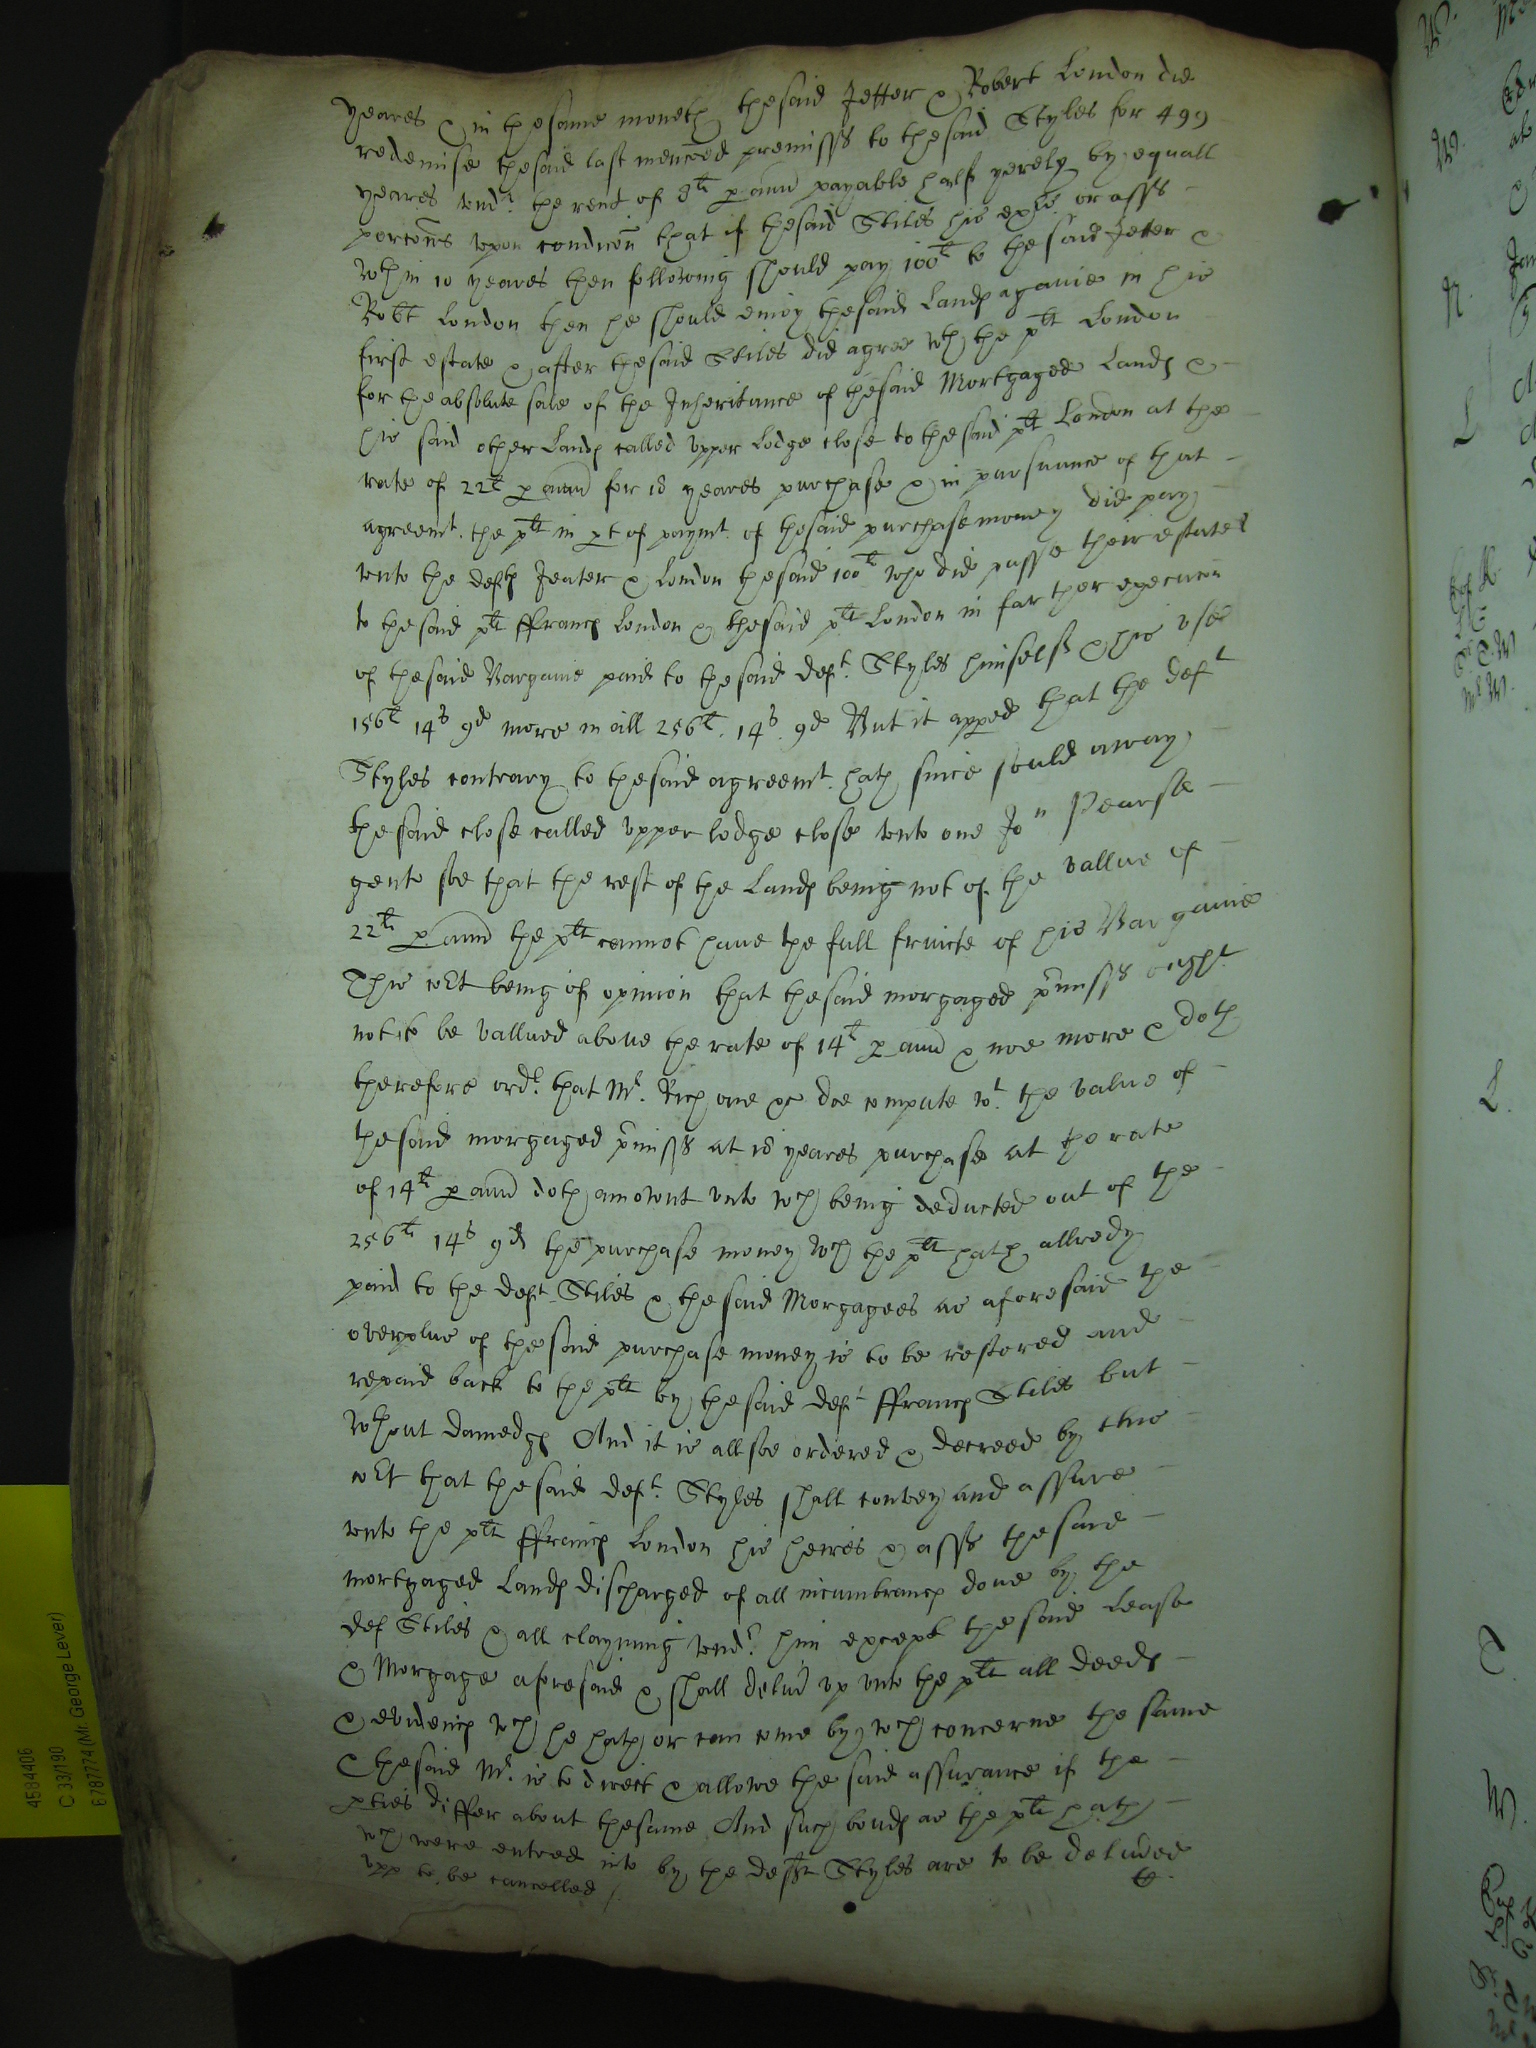 yeares & in the same moneth the said Jetter & Robert London did
redemise the said last menc̃oed premisss to the said Styles for 499
yeares vnd.r the rent of 8li p ann̄ payable halfe yerely by equall
porcõns vpon condicõn that if the said Stiles his exrs or asss
wthin 10 yeares then following should pay 100li to the said Jetter &
Robt London then he should enioy the said Lands againe in his
first estate & after the said Stiles did agree wth the plt London
for the absolute sale of the Inheritance of the said Mortgaged Lands &
his said other Lands called vpper Lodge close to the said plt London at the
rate of 22li p ann̄ for 18 yeares purchase & in pursuance of that
agreemt. the plt in pt of paymt. of the said purchase money did pay
vnto the defts Jeater & London the said 100li who did passe their estates
to the said plt ffrancs London & the said plt London in farther execucõn
of the said Bargaine paid to the said deft. Styles himselfe & his vse
156li 14s 9d more in all 256li. 14s. 9d But it appeed that the deft
Styles contrary to the said agreemt. hath since sould away
the said close called vpper lodge close vnto one Jon Pearse
gent soe that the rest of the Lands being not of the vallue of
22li p ann̄ the plt cannot haue the full fruicte of his Bargaine
This cort being of opinion that the said morgaged p̄misss ought
not to be vallued aboue the rate of 14li p ann̄ & noe more & doth
therefore ordr. that Mr. Rich one &c doe compute wt. the value of
the said morgaged p̄misss at 18 yeares purchase at the rate
of 14li p ann̄ doth amownt vnto wch being deducted out of the
256li 14s 9d the purchase money wch the plt hath allredy
paid to the deft Stiles & the said Morgagees as aforesaid the
overplus of the said purchase money is to be restored and
repaid back to the plt by the said deft ffrancs Stiles but
wthout damedgs And it is allsoe ordered & decreed by this
cort that the said deft. Styles shall convey and assure
vnto the plt ffrancs London his heires & asss the said
mortgaged Lands discharged of all incumbrancs done by the
def Stiles & all clayming vndr. him except the said Lease
& Morgage aforesaid & shall deliũ vp vnto the plt all deeds
& evidencs wch he hath or can come by wch concerne the same
& the said Mr. is to direct & allowe the said assurance if the
pties differ about the same And such bonds as the plt hath
wch were entred into by the deft Styles are to be deliũed
vpp to be cancelled /.
4584406
C 33/190
6787774 (Mr. George Lever)